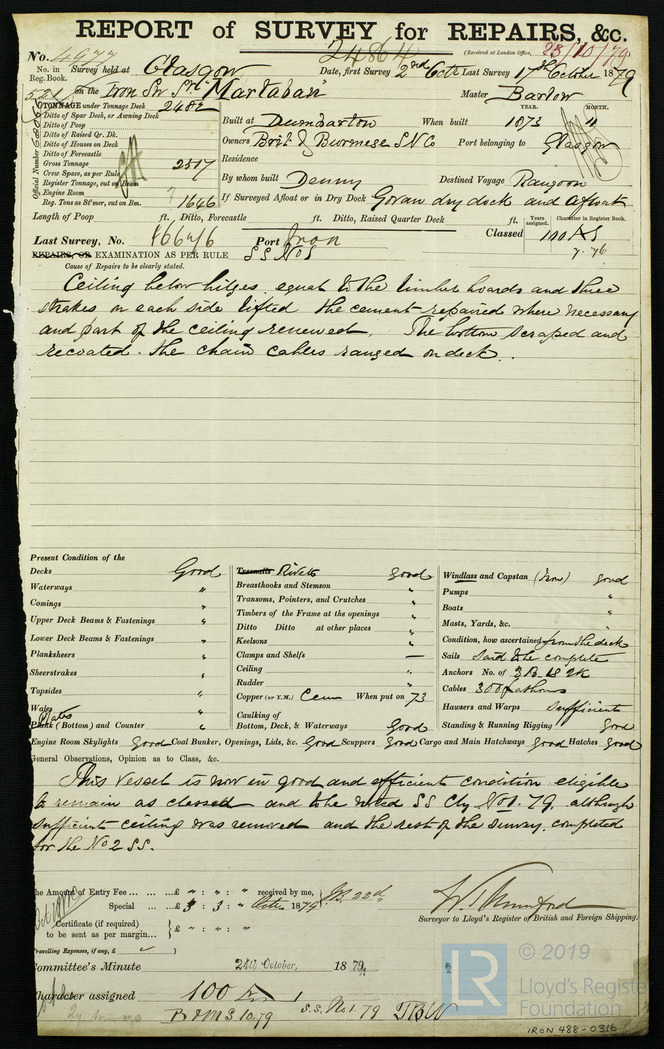 REPORT of SURVEY for REPAIRS, &c.
No. 4977 24864 (Received at London Office, 23/10/79
No. in Reg. Book. Survey held at Glasgow Date, first Survey 2nd Octr Last Survey 17th October 1879
on the Iron Sc Str Martaban Master Barlow
TONNAGE under Tonnage Deck 2482
Ditto of Spar Deck, or Awning Deck
Ditto of Poop
Ditto of Raised Qr. Dk.
Ditto of Houses on Deck
Ditto of Forecastle
Gross Tonnage 2517
Crew Space, as per Rule
Register Tonnage, cut on Beam
Engine Room
Reg. Tons as St'mer, cut on Bm. 1646
Official Number
YEAR. MONTH.
Built at Dumbarton When built 1873 11
Owners Brit & Burmese S N Co Port belonging to Glasgow
Residence
By whom built Denny Destined Voyage Rangoon
If Surveyed Afloat or in Dry Dock Govan dry dock and afloat
Length of Poop ft. Ditto, Forecastle ft. Ditto, Raised Quarter Deck ft.
Years assigned. Character in Register Book.
Last Survey, No. Port Iron Classed 100 A1
7.76
REPAIRS, OR EXAMINATION AS PER RULE SS No 1
Cause of Repairs to be clearly stated.
Ceiling below bilges equal to the limber boards and three
strakes on each side lifted the cement repaired where necessary
and part of the ceiling renewed. The bottom scraped and
recoated. the chain cables ranged on deck.
Present Condition of the
Decks Good
Waterways "
Comings "
Upper Deck Beams & Fastenings "
Lower Deck Beams & Fastenings "
Planksheers "
Sheerstrakes "
Topsides "
Wales "
Plates
Plank (Bottom) and Counter "
Treenails Rivets good
Breasthooks and Stemson "
Transoms, Pointers, and Crutches "
Timbers of the Frame at the openings "
Ditto Ditto at other places "
Keelsons "
Clamps and Shelfs —
Ceiling "
Rudder "
Copper (or Y.M.) Cem When put on 73
Caulking of
Bottom, Deck, & Waterways Good
Windlass and Capstan (Iron) good
Pumps "
Boats "
Masts, Yards, &c. "
Condition, how ascertained from the deck
Sails said to be complete
Anchors No. of 3 B. 1 S 2 K
Cables 300 fathoms
Hawsers and Warps sufficient
Standing & Running Rigging Good
Engine Room Skylights Good Coal Bunker, Openings, Lids, &c. Good Scuppers Good Cargo and Main Hatchways Good Hatches Good
General Observations, Opinion as to Class, &c.
This Vessel is now in good and efficient condition eligible
to remain as classed and to be noted SS Cly No 1. 79 although
sufficient ceiling was removed and the rest of the survey completed
for the No 2 SS.
The Amount of Entry Fee ... ... ... £ " : " : " received by me,
Special ... ... £ 3 : 3 : " 187
Certificate (if required) to be sent as per margin... £ " : " : "
Travelling Expenses, if any, £
Surveyor to Lloyd's Register of British and Foreign Shipping.
Committee's Minute 24th October, 1879.
Character assigned 100 A 1
B & M S 10.79 S.S. No 1. 79
LR © 2019
Lloyd's Register
Foundation
IRON 488-0316